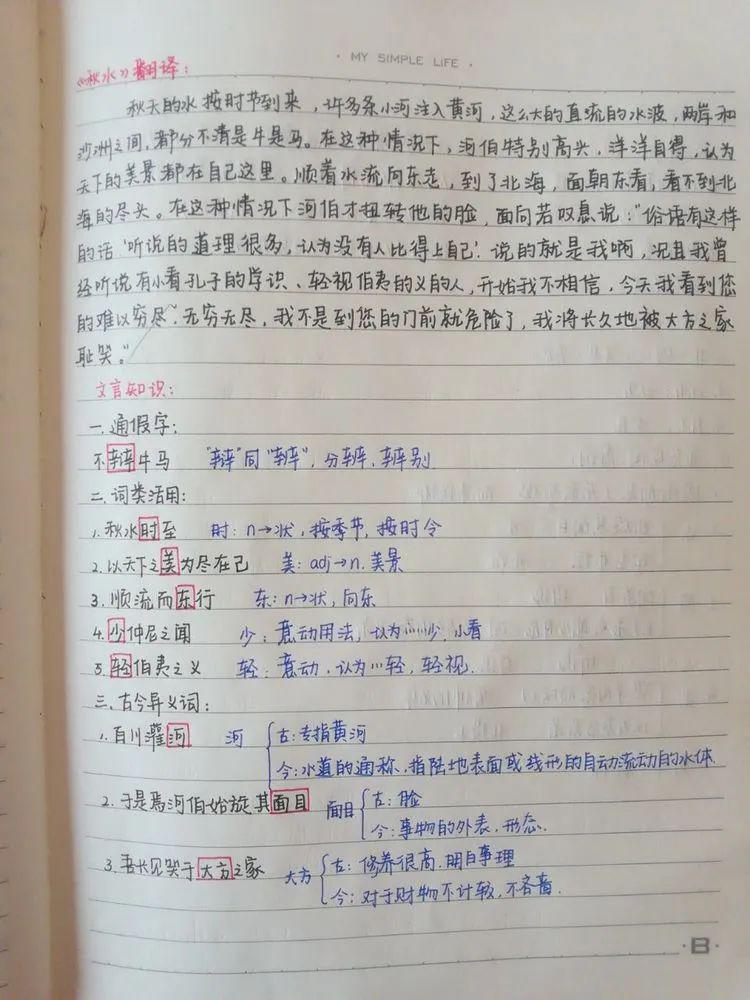 · MY SIMPLE LIFE ·
《秋水》翻译:
秋天的水按时节到来，许多条小河注入黄河，这么大的直流的水波，两岸和
沙洲之间，都分不清是牛是马。在这种情况下，河伯特别高兴，洋洋自得，认为
天下的美景都在自己这里。顺着水流向东走，到了北海，面朝东看，看不到北
海的尽头。在这种情况下河伯才扭转他的脸，面向若叹息说："俗话有这样
的话'听说的道理很多，认为没有人比得上自己'.说的就是我啊，况且我曾
经听说有小看孔子的学识、轻视伯夷的义的人，开始我不相信，今天我看到您
的难以穷尽，无穷无尽，我不是到您的门前就危险了，我将长久地被大方之家
耻笑。"
文言知识:
一.通假字:
不辩牛马 "辩"同"辨"，分辨，辨别
二.词类活用:
1.秋水时至 时: n→状，按季节，按时令
2.以天下之美为尽在己 美: adj→n.美景
3.顺流而东行 东: n→状，向东
4.少仲尼之闻 少: 意动用法，认为……少，小看
5.轻伯夷之义 轻: 意动，认为…轻，轻视.
三.古今异义词:
1.百川灌河 河 古:专指黄河
今:水道的通称，指陆地表面或线形的自动流动的水体.
2.于是焉河伯始旋其面目 面目 古:脸
今:事物的外表，形态.
3.吾长见笑于大方之家 大方 古:修养很高，明白事理
今:对于财物不计较，不吝啬.
·B·